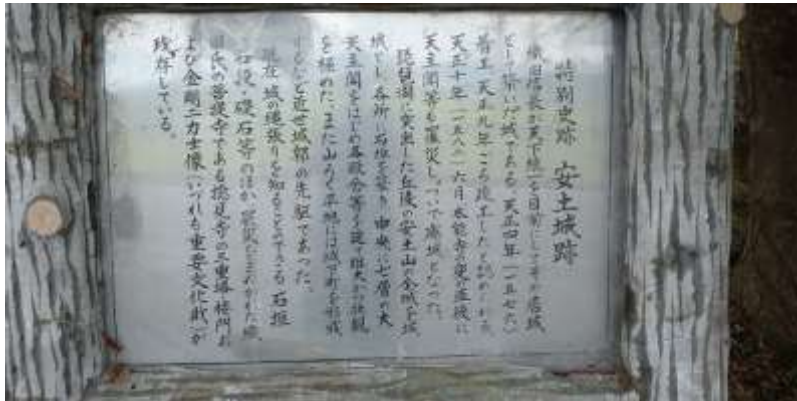 特別史跡 安土城跡
織田信長が天下統一を目前にしてその居城
として築いた城である 天正四年(一五七六)
着工 天正九年ころ竣工したと認められるが
天正十年(一五八二)六月本能寺の変の直後に
天主閣等も罹災し、ついで廃城となった。
琵琶湖に突出した丘陵の安土山の全域を城
域とし、各所に石垣を築き 中央に七層の大
天主閣をはじめ各殿舎等を建て雄大か壮観
を極めた、また山ろく平地には城下町を形成
するなど近世城郭の先駆であった。
現在 城の縄張りを知ることができる 石垣
石段・礎石等のほか 罹災をまぬがれた織
田氏の菩提寺である摠見寺の三重塔・楼門お
よび金剛二力士像(いづれも重要文化財)が
残存している。